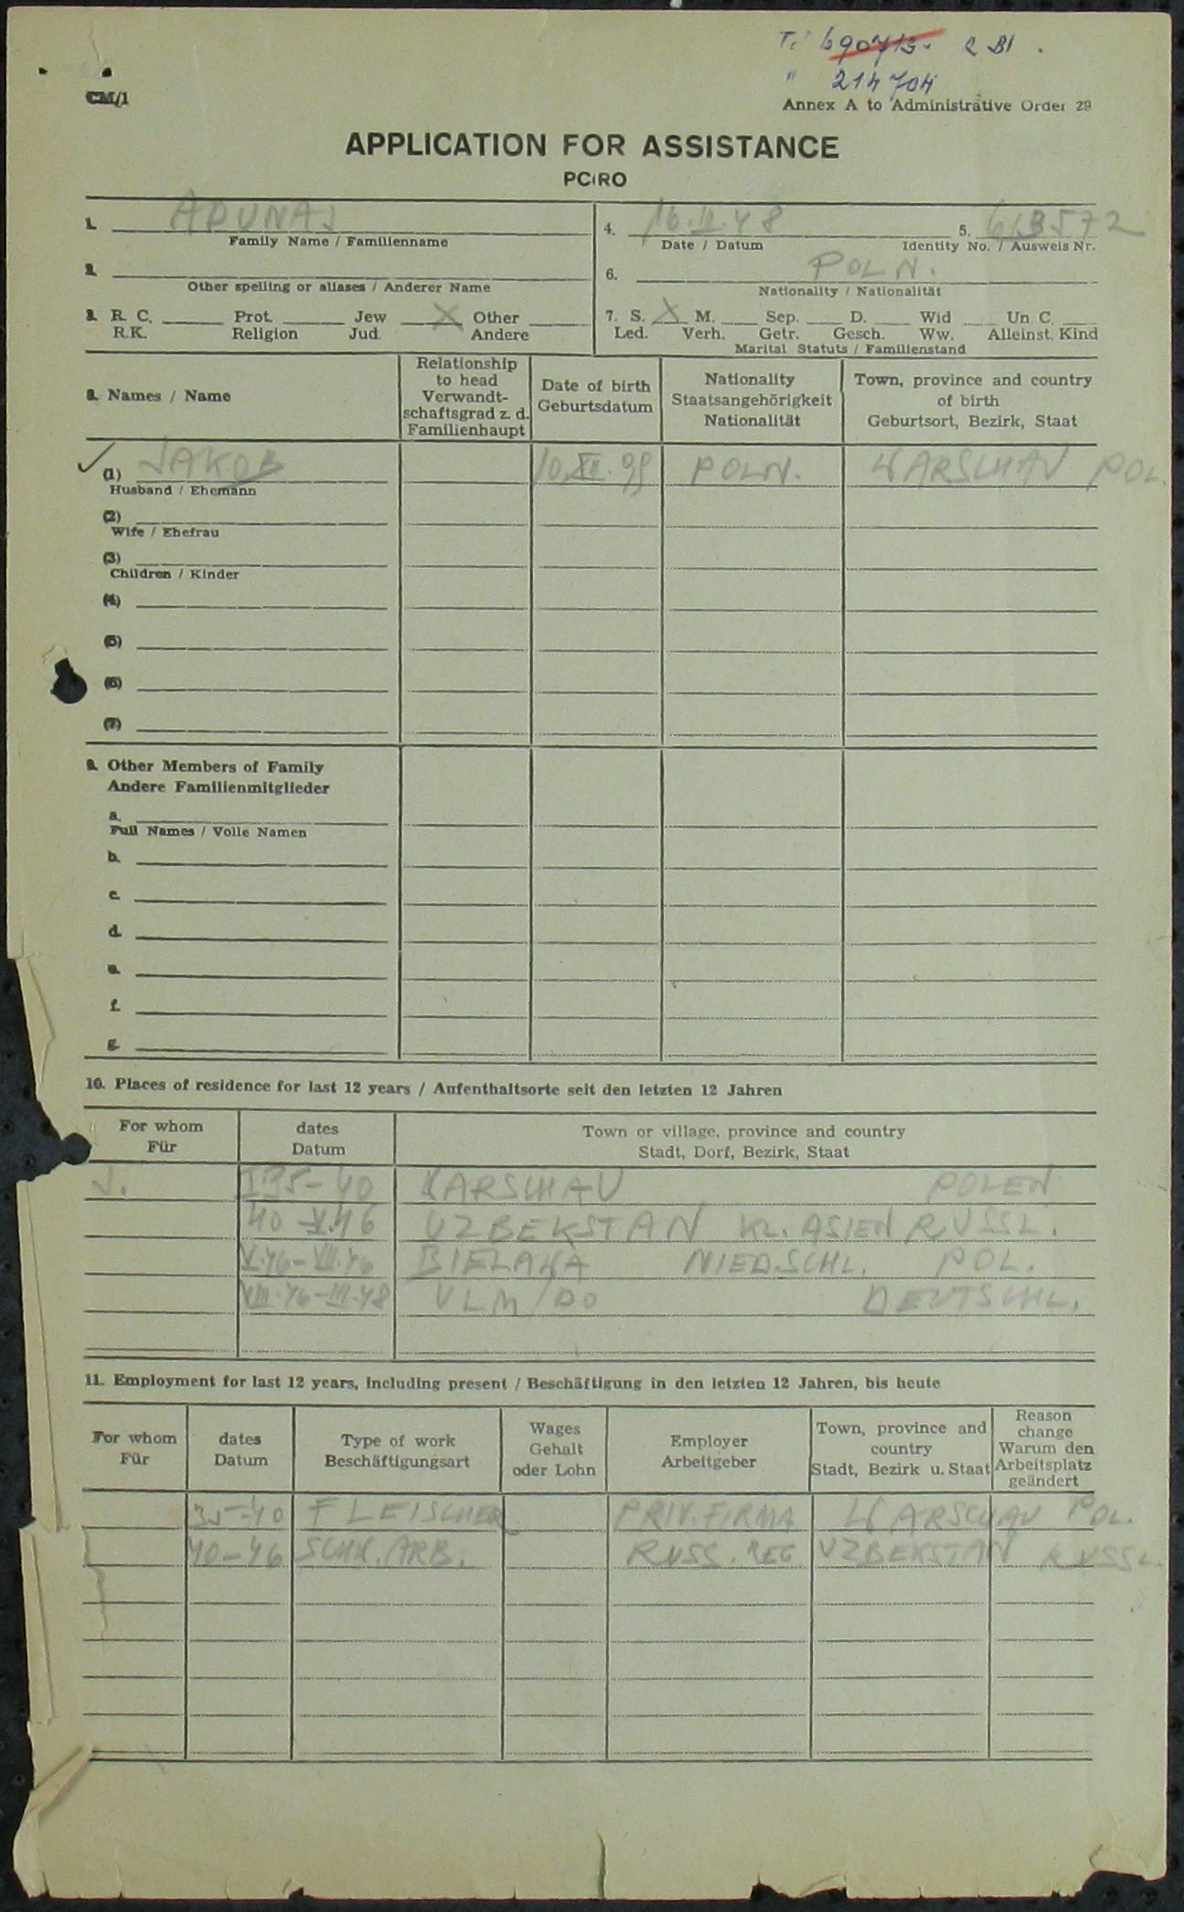 690713. 2 Bl.
" 214 704
CM/1
Annex A to Administrative Order 29
APPLICATION FOR ASSISTANCE
PCIRO
1. ADUNAJ
Family Name / Familienname
4. 16.II.48
Date / Datum
5.
Identity No. / Ausweis Nr.
2.
Other spelling or aliases / Anderer Name
6. POLN.
Nationality / Nationalität
3. R. C. Prot. Jew X Other
R.K. Religion Jud. Andere
7. S. X M. Sep. D. Wid Un. C.
Led. Verh. Getr. Gesch. Ww. Alleinst. Kind
Marital Statuts / Familienstand
8. Names / Name
Relationship
to head
Verwandt-
schaftsgrad z. d.
Familienhaupt
Date of birth
Geburtsdatum
Nationality
Staatsangehörigkeit
Nationalität
Town, province and country
of birth
Geburtsort, Bezirk, Staat
(1) JAKOB 10.XII. POLN. WARSCHAU POL.
Husband / Ehemann
(2)
Wife / Ehefrau
(3)
Children / Kinder
(4)
(5)
(6)
(7)
9. Other Members of Family
Andere Familienmitglieder
a.
Full Names / Volle Namen
b.
c.
d.
e.
f.
g.
10. Places of residence for last 12 years / Aufenthaltsorte seit den letzten 12 Jahren
For whom
Für
dates
Datum
Town or village, province and country
Stadt, Dorf, Bezirk, Staat
J. 35-40 WARSCHAU POLEN
40-V.46 UZBEKSTAN KL. ASIEN RUSSL.
V.46-VIII.46 BIELAWA NIED.SCHL. POL.
VIII.46-III.48 ULM/DO DEUTSCHL.
11. Employment for last 12 years, including present / Beschäftigung in den letzten 12 Jahren, bis heute
For whom
Für
dates
Datum
Type of work
Beschäftigungsart
Wages
Gehalt
oder Lohn
Employer
Arbeitgeber
Town, province and
country
Stadt, Bezirk u. Staat
Reason
change
Warum den
Arbeitsplatz
geändert
35-40 FLEISCHER PRIV. FIRMA WARSCHAU POL.
40-46 SCHW. ARB. RUSS. REG UZBEKSTAN RUSSL.